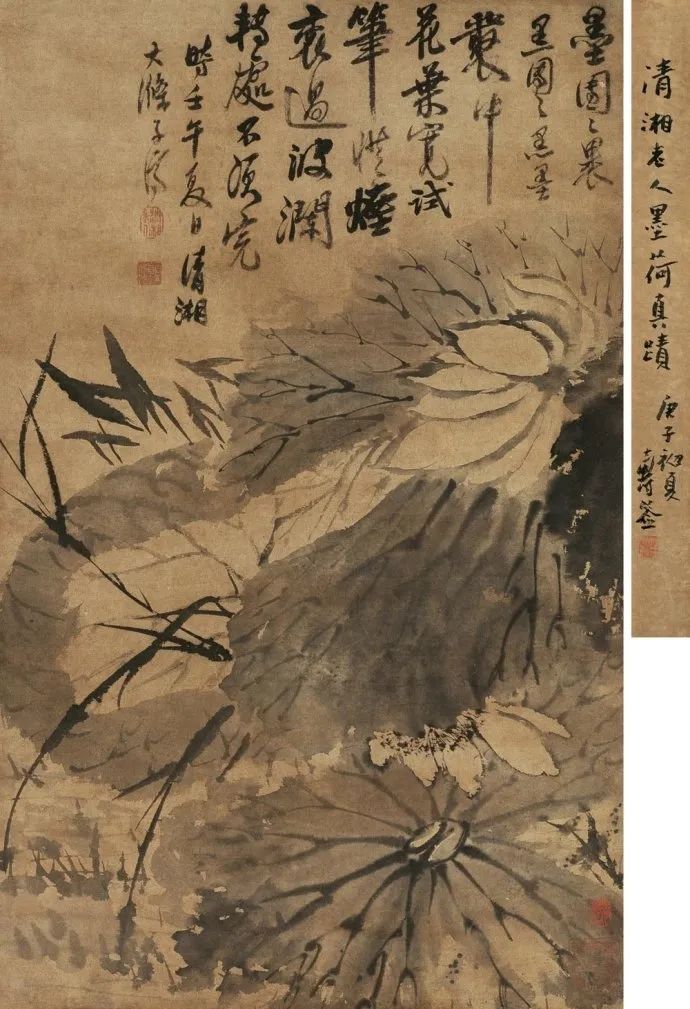 墨團〻裏
黑團〻黑墨
叢中
花葉寬試
筆從煙
裏過波瀾
轉處不須完
時壬午夏日清湘
大滌子濟
清湘老人墨荷真蹟
庚子初夏